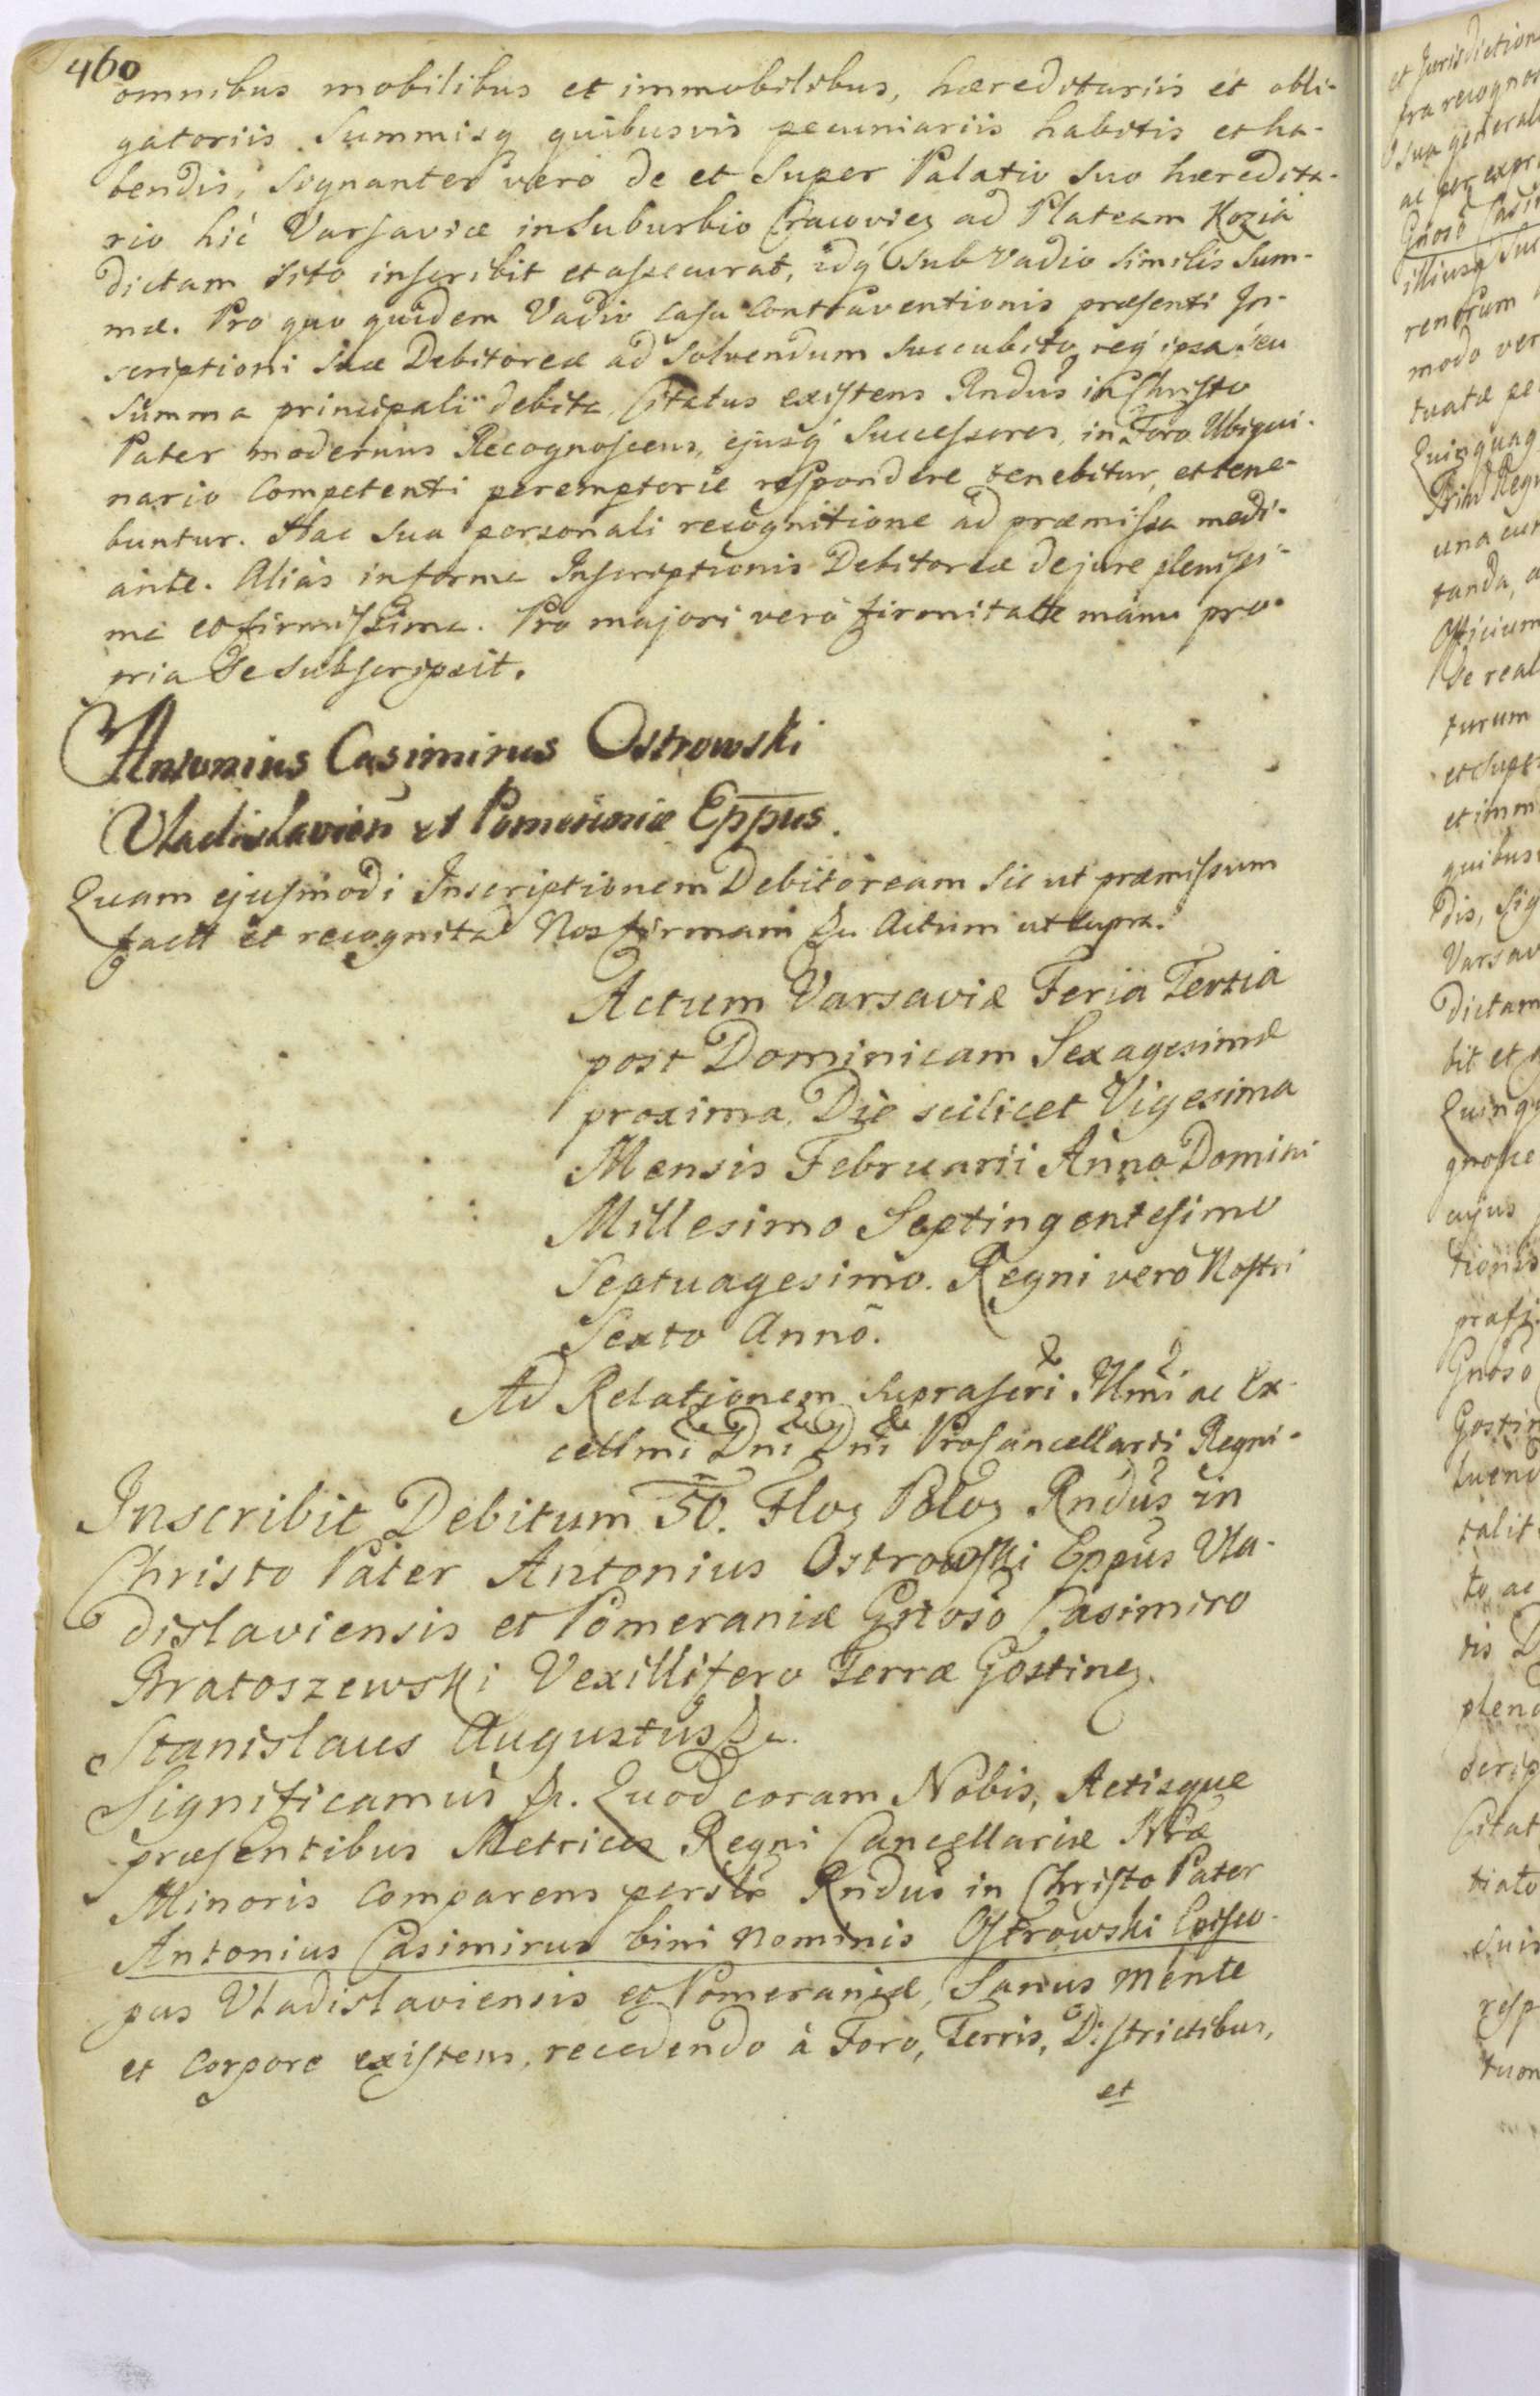 460
omnibus mobilibus et immobilibus, hæreditariis et obli-
gatoriis Summisq quibusvis pecuniariis habitis et ha-
bendis, Signanter vero de et Super Palatio Suo hæredita-
rio hic Varsaviæ in Suburbio Cracovien ad Plateam Kozia
dictam sito inscribit et assecurat, idq Sub Vadio Similis Sum-
mæ. Pro quo quidem Vadio Casu Contraventionis præsenti In-
scriptioni Suæ Debitoreæ ad Solvendum Succubito, req ipsa seu
Summa principali debita, Citatus existens Rndus in Christo
Pater modernus Recognoscens, ejusq Successores, in Foro Ubiqui-
nario Competenti peremptorie respondere tenebitur, et tene-
buntur. Hac Sua personali recognitione ad præmissa medi-
ante. Alias in forma Inscriptionis Debitoreæ de jure plenissi-
me et firmissime. Pro majori vero firmitate manu pro-
pria Se Subscripsit.
Antonius Casimirus Ostrowski
Vladislavien et Pomeraniæ Eppus.
Quam ejusmodi Inscriptionem Debitoream Sic ut præmissum
factt et recognita Nos firmam &c Actum ut supra.
Actum Varsaviæ Feria Tertia
post Dominicam Sexagesimæ
proxima, Die scilicet Vigesima
Mensis Februarii Anno Domini
Millesimo Septingentesimo
Septuagesimo. Regni vero Nostri
Sexto Anno.
Ad Relationem Suprascri Illmi ac Ex-
cellmi Dni Dni ProCancellarii Regni-
Inscribit Debitum 50. Flor Polor Rndus in
Christo Pater Antonius Ostrowski Eppus Vla-
dislaviensis et Pomeraniæ Gnoso Casimiro
Bratoszewski Vexillifero Terræ Gostinen.
Stanislaus Augustus &c.
Significamus &c. Quod coram Nobis, Actisque
præsentibus Metrices Regni Cancellariæ Nræ
Minoris Comparens persltr Rndus in Christo Pater
Antonius Casimirus bini nominis Ostrowski Episco-
pus Vladislaviensis et Pomeraniæ, Sanus mente
et Corpore existens, recedendo à Foro, Terris, Districtibus,
et